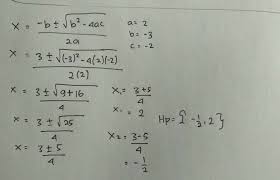 x = -b ± √b² - 4ac / 2a
a = 2
b = -3
c = -2
x = 3 ± √(-3)² - 4(2)(-2) / 2(2)
x = 3 ± √9 + 16 / 4
x = 3 ± √25 / 4
x = 3 ± 5 / 4
x₁ = 3+5 / 4
x₁ = 2
x₂ = 3-5 / 4
= -1/2
Hp = {-1/2, 2}